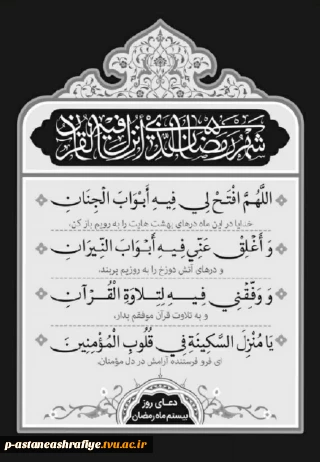 شهر رمضان الذی أنزل فیه القرآن
اللَّهُمَّ افْتَحْ لِي فِيهِ أَبْوَابَ الْجِنَانِ
خدایا در این ماه درهای بهشت هایت را به رویم باز کن،
وَ أَغْلِقْ عَنِّي فِيهِ أَبْوَابَ النِّيرَانِ
و درهای آتش دوزخ را به رویم بربند،
وَ وَفِّقْنِي فِيهِ لِتِلَاوَةِ الْقُرْآنِ
و به تلاوت قرآن موفقم بدار،
يَا مُنْزِلَ السَّكِينَةِ فِي قُلُوبِ الْمُؤْمِنِينَ
ای فرو فرستنده آرامش در دل مؤمنان.
دعای روز
بیستم ماه رمضان
p-astaneashrafiye.tvu.ac.ir